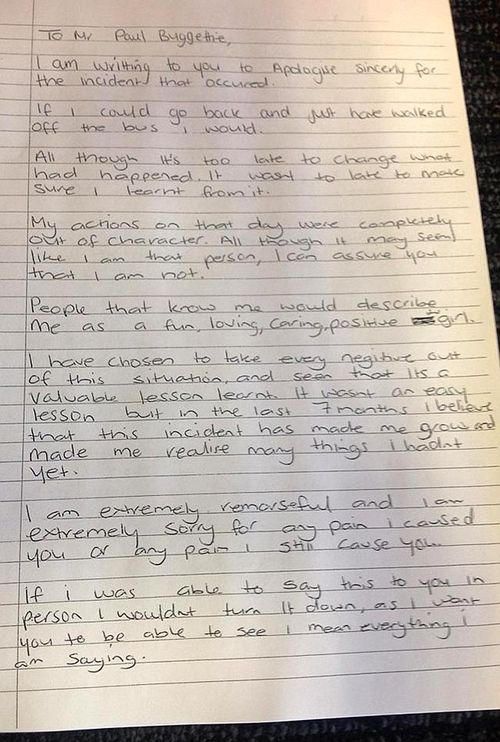 To Mr Paul Buggethie,
I am writting to you to Apologise sincerly for
the incident that occured.
If i could go back and just have walked
off the bus i would.
All though it's too late to change what
had happened. It wasnt to late to make
sure i learnt from it.
My actions on that day were completely
out of character. All though it may seem
like I am that person, I can assure you
that I am not.
People that know me would describe
me as a fun, loving, caring, positive girl.
I have chosen to take every negitive out
of this situation, and seen that its a
valuable lesson learnt. It wasnt an easy
lesson but in the last 7 months i believe
that this incident has made me grow and
made me realise many things i hadnt
yet.
I am extremely remorseful and i am
extremely sorry for any pain i caused
you or any pain i still cause you.
If i was able to say this to you in
person I wouldnt turn it down, as i want
you to be able to see i mean everything i
am saying.